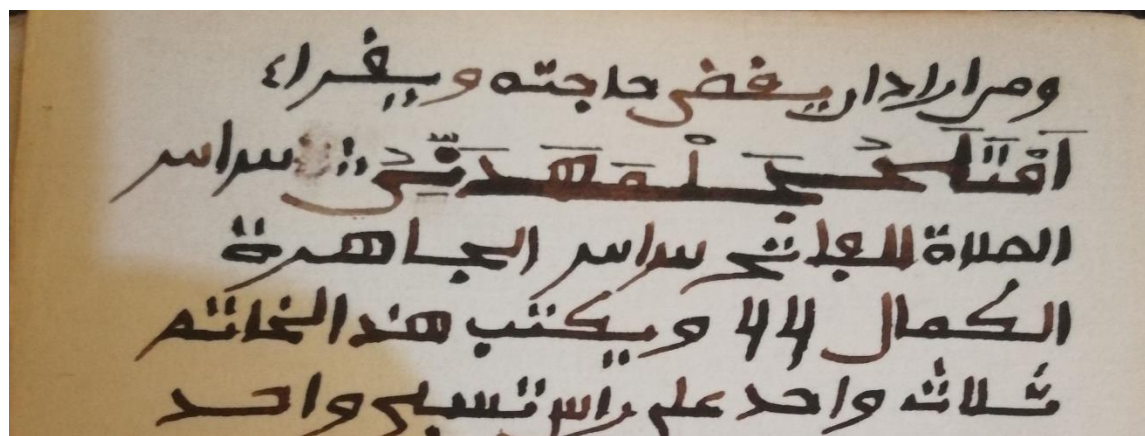 ومن اراد ان يفض حاجته ويفرا ٤
سراسر
الصلاة للفاتح سراسر الجاهرة
الكمال 44 ويكتب هذا الخاتم
ثلاث واحد على راس تسبيح واحد